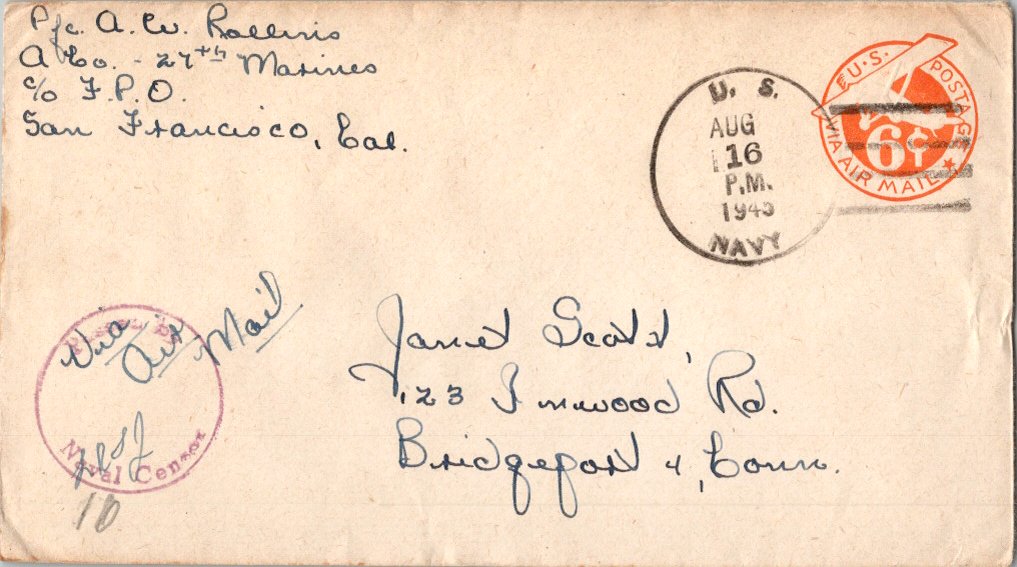 Pfc. A. W. Rollins
A Co. - 27th Marines
c/o F.P.O.
San Francisco, Cal.
U. S.
AUG
16
P.M.
1945
NAVY
U.S. POSTAGE
VIA AIR MAIL
6¢
Via
Air Mail
Passed by
Naval Censor
10
Janet Scott,
123 Inwood Rd.
Bridgeport 4, Conn.